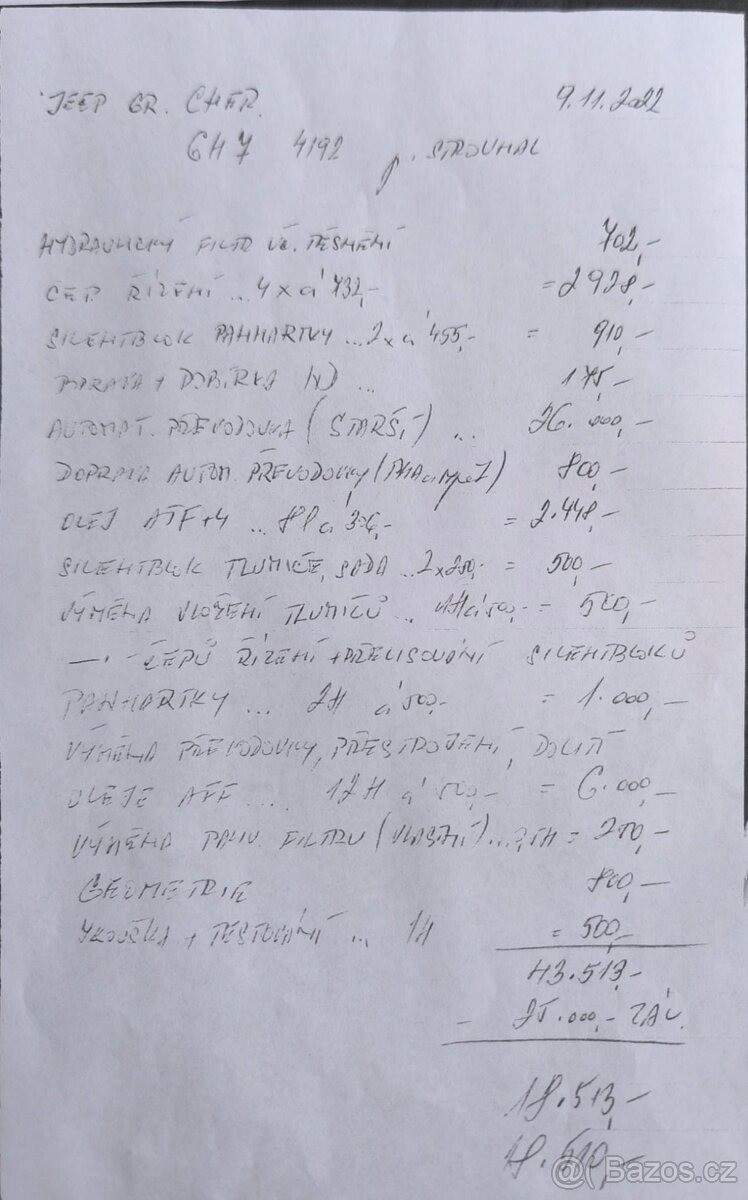 JEEP GR. CHER. 9.11.2022
6H7 4192 p. STROUHAL
HYDRAULICKÝ FILTR VČ. TĚSNĚNÍ 702,-
ČEP ŘÍZENÍ ... 4 x á 732,- = 2928,-
SILENTBLOK PANHARTKY ... 2 x á 455,- = 910,-
DOPRAVA + DOBÍRKA ND ... 175,-
AUTOMAT. PŘEVODOVKA (STARŠÍ) ... 26.000,-
DOPRAVA AUTOM. PŘEVODOVKY ( ) 800,-
OLEJ ATF+4 ... 8l á 306,- = 2.448,-
SILENTBLOK TLUMIČE, SADA ... 2x250,- = 500,-
VÝMĚNA VLOŽENÍ TLUMIČŮ .. 1H á 500,- = 500,-
—"— ČEPŮ ŘÍZENÍ + PŘELISOVÁNÍ SILENTBLOKŮ
PANHARTKY ... 2H á 500,- = 1.000,-
VÝMĚNA PŘEVODOVKY, PŘESTROJENÍ, DOLITÍ
OLEJE ATF .... 12H á 500,- = 6.000,-
VÝMĚNA PALIV. FILTRU (VLASTNÍ) ... = 250,-
GEOMETRIE 800,-
ZKOUŠKA + TESTOVÁNÍ ... 1H = 500,-
43.513,-
- 25.000,- ZÁL.
18.513,-
18.510,-
Bazos.cz